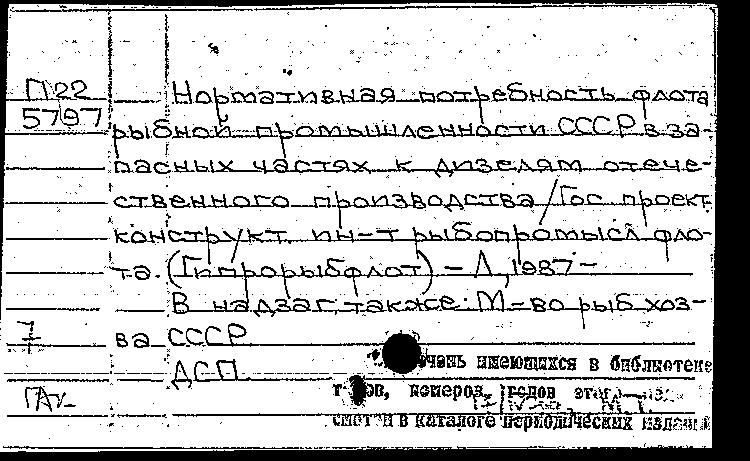 П22
5797
Нормативная потребность флота
рыбной промышленности СССР в за-
пасных частях к дизелям отече-
ственного производства/Гос. проект.
конструкт. ин-т рыбопромысл. фло-
та. (Гипрорыбфлот) – Л., 1987 –
В надзаг. также: М-во рыб. хоз-
ва СССР
ДСП.
7
имеющихся в библиотеке
номеров, годов
в каталоге периодических изданий